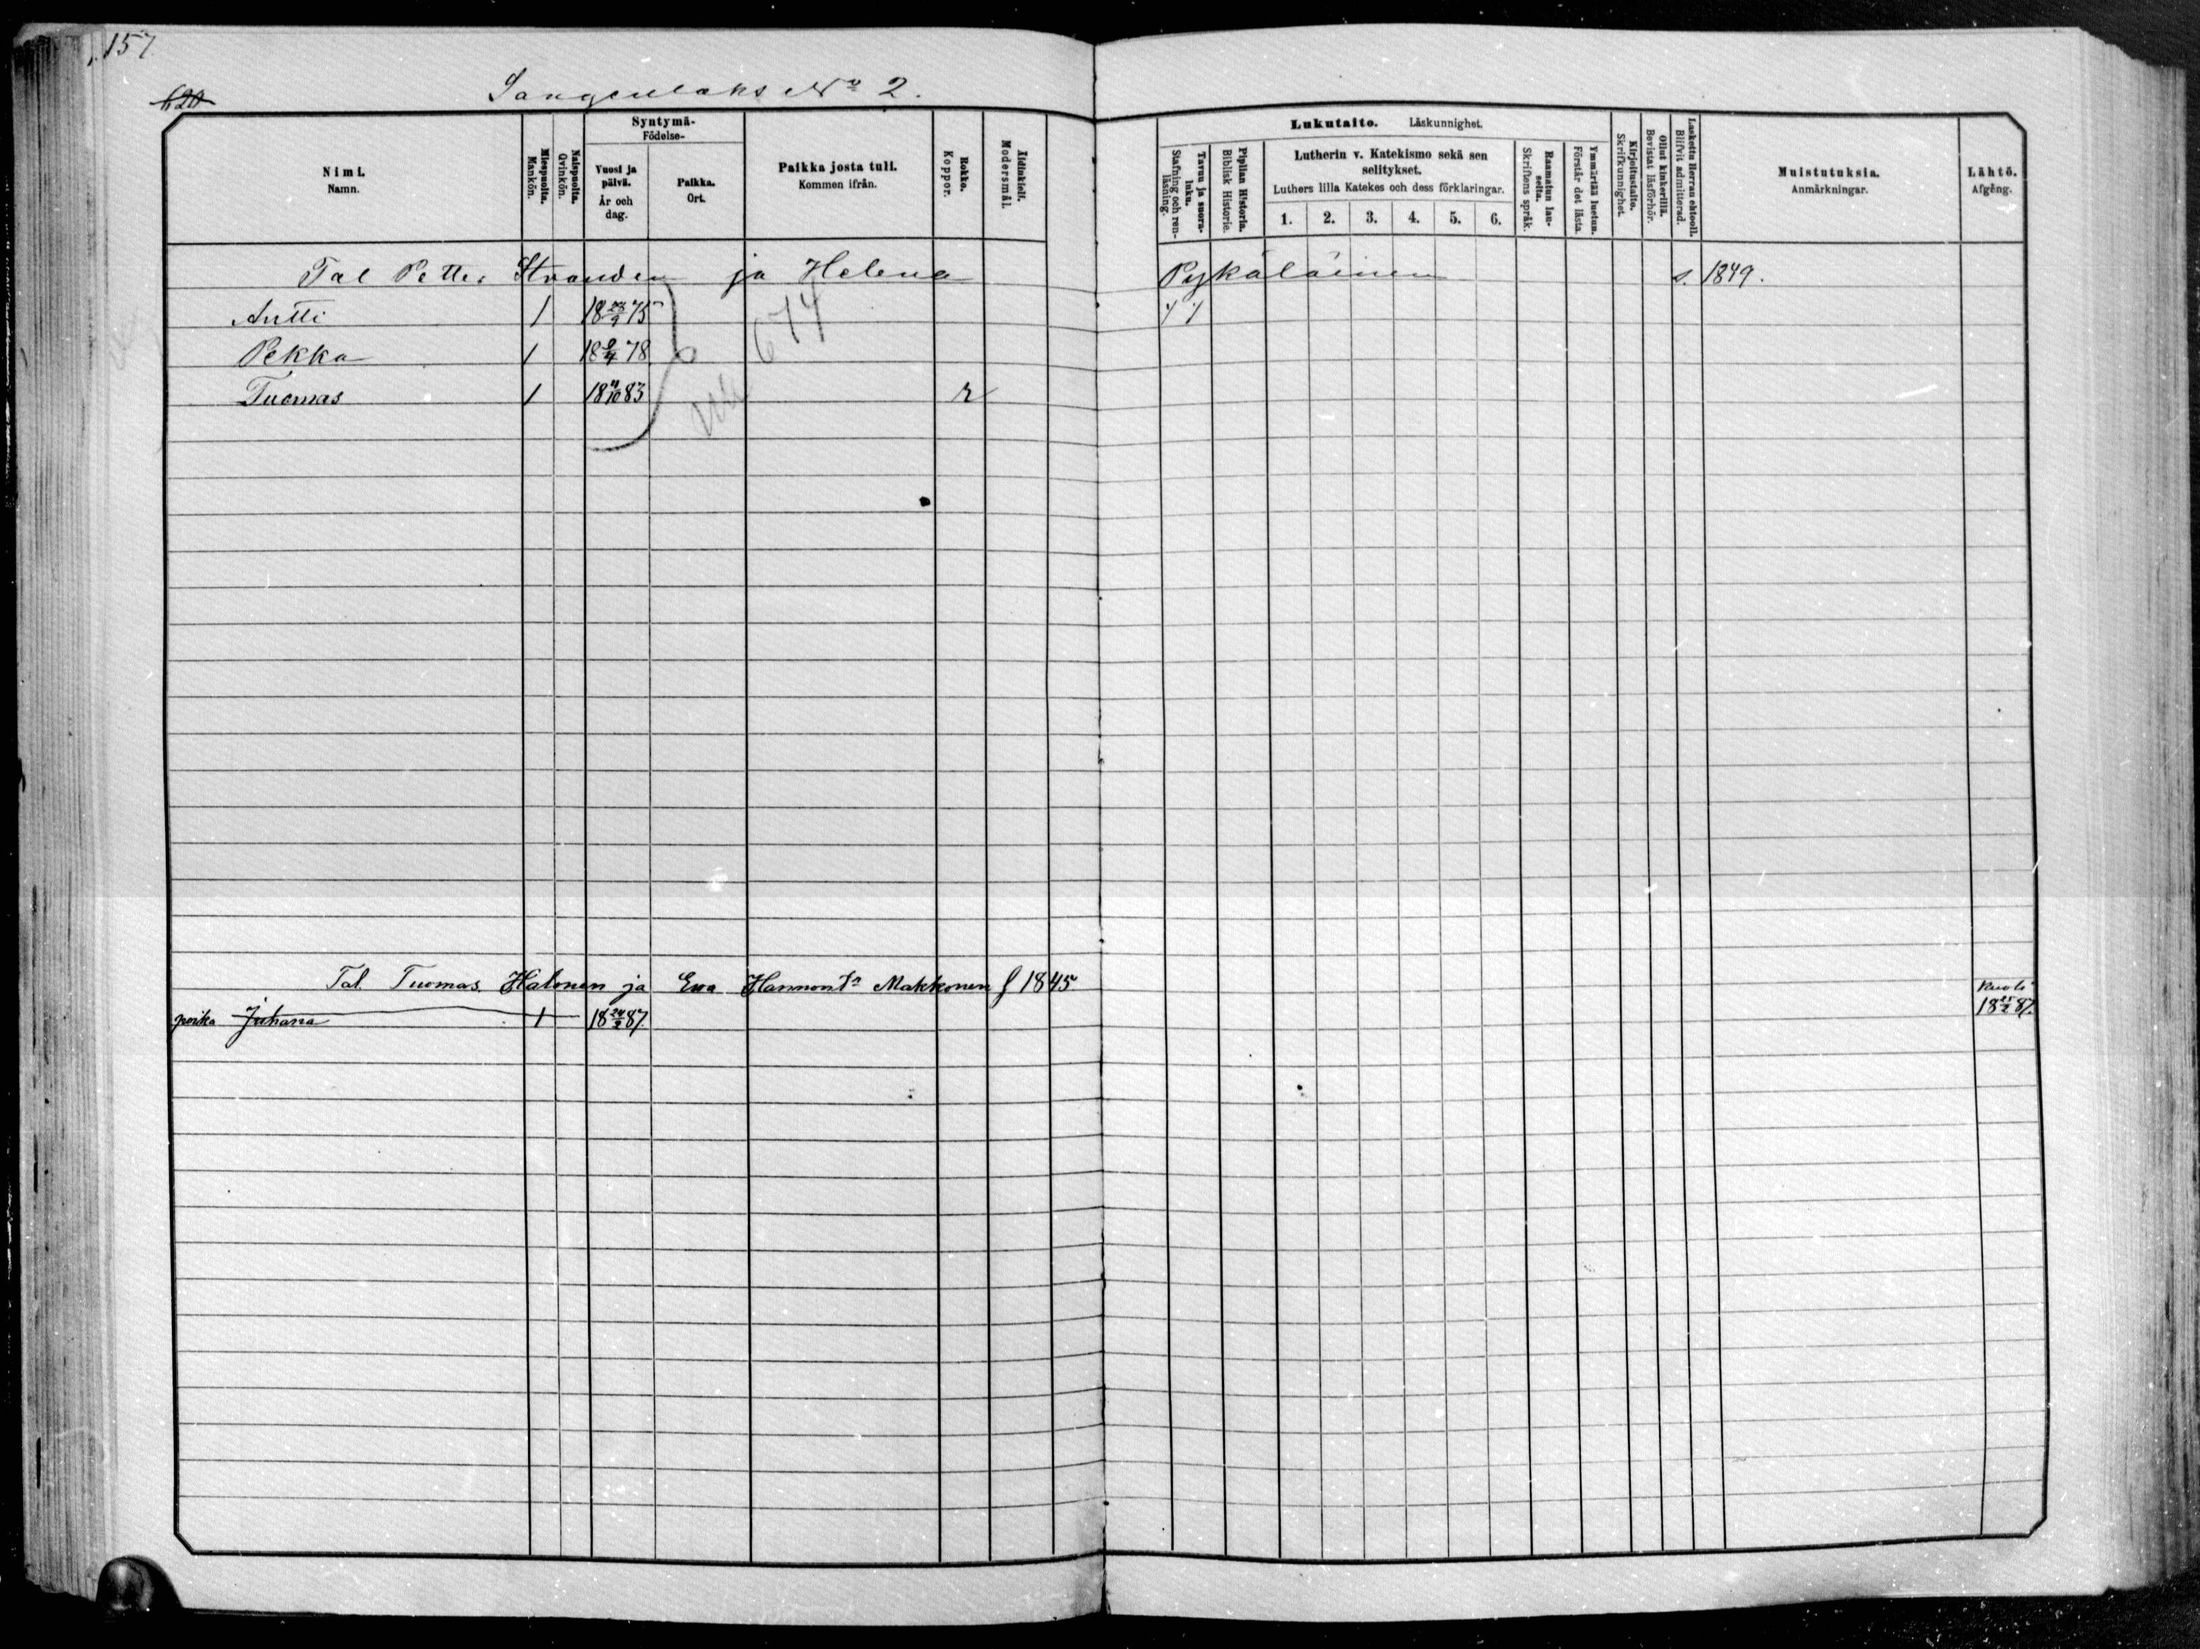 157
620
Sangenlaks No 2.
Nimi.
Namn.
Miespuolta.
Mankön.
Naispuolta.
Qvinkön.
Syntymä-
Födelse-
Vuosi ja
päivä.
År och
dag.
Paikka.
Ort.
Paikka josta tuli.
Kommen ifrån.
Rokko.
Koppor.
Äidinkieli.
Modersmål.
Lukutaito. Läskunnighet.
Tavuu ja suora-
luku.
Stafning och ren-
läsning.
Piplian Historia.
Biblisk Historie.
Lutherin v. Katekismo sekä sen
selitykset.
Luthers lilla Katekes och dess förklaringar.
1. 2. 3. 4. 5. 6.
Raamatun lau-
seita.
Skriftens språk.
Ymmärtää luetun.
Förstår det lästa.
Kirjoitustaito.
Skrifkunnighet.
Ollut kinkerillä.
Bevistat läsförhör.
Laskettu Herran ehtooll.
Blifvit admitterad.
Muistutuksia.
Anmärkningar.
Lähtö.
Afgång.
Tal Petter Stranden ja Helena Pykäläinen s. 1849.
Antti 1 18 23/9 75
Pekka 1 18 9/4 78
Tuomas 1 18 11/10 83 r
674
Tal. Tuomas Halonen ja Eva Hannont:r Makkonen f 1845
poika Juhana 1 18 24/2 87. Kuoli 18 25/2 87.